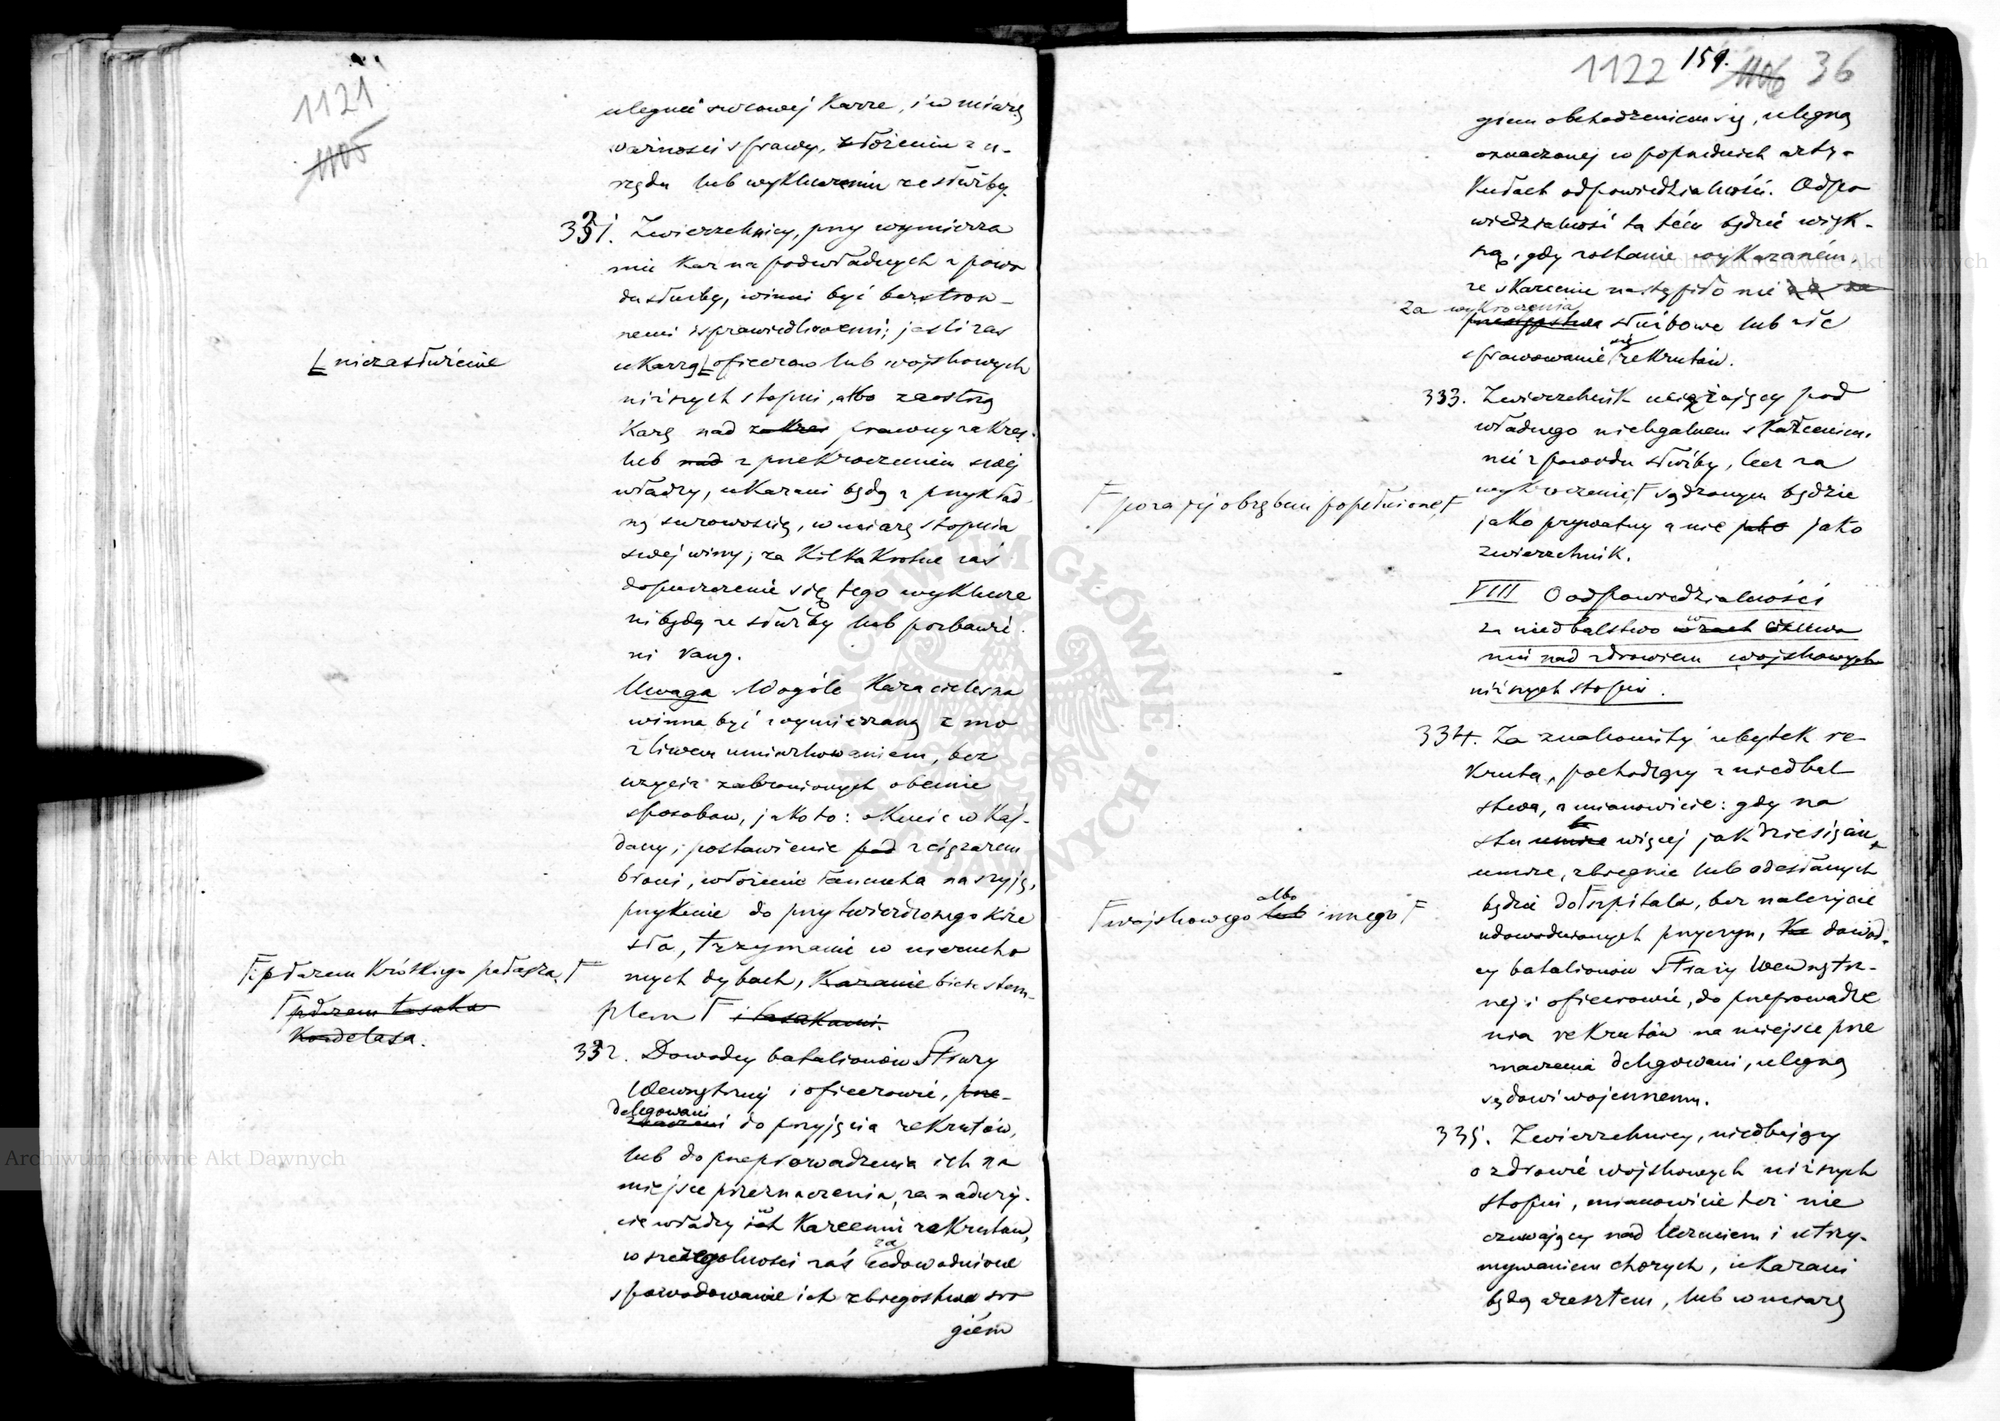 1121
1105
ulegnie surowej karze, i w miarę
ważności sprawy, złożeniu z u-
rzędu lub wykluczeniu ze służby.
331. Zwierzchnicy, przy wymierza
niu kar na podwładnych z powo
du służby, winni być bezstron-
nemi i sprawiedliwemi; jeśli zaś
ukarzą oficerów lub wojskowych
niezasłużenie
niższych stopni, albo zaostrzą
karę nad zakres prawny zakres
lub nad z przekroczeniem swej
władzy, ukarani będą z przykład
ną surowością, w miarę stopnia
swej winy; za kilkakrotne zaś
dopuszczenie się tego wyklucze
ni będą ze służby lub pozbawie
ni rang.
Uwaga. Wogóle kara cielesna
winna być wymierzaną z mo
żliwem umiarkowaniem, bez
użycia zabronionych obecnie
sposobów, jakoto: okucie w kaj-
dany, postawienie pod z ciężarem
broni, włożenie łańcucha na szyję,
przykucie do przytwierdzonego krze
sła, trzymanie w nierucho
mych dybach, karanie bicie stem-
plem i tasakami.
płazem krótkiego pałasza
płazem tasaka
kordelasa.
332. Dowódcy batalionów Straży
Wewnętrznej i oficerowie, prze-
delegowani
znaczeni do przyjęcia rekrutów,
lub do przeprowadzenia ich na
miejsce przeznaczenia, za naduży-
cie władzy ich w karceniu rekrutów,
w szczególności zaś za udowodnione
spowodowanie ich zbiegostwa sro
giem
1122 159. 1106 36
giem obchodzeniem się, ulegną
oznaczonej w poprzednich arty-
kułach odpowiedzialności. Odpo
wiedzialność ta tém będzie więk-
szą, gdy zostanie wykazaném,
że skarcenie nastąpiło nie za za
za wykroczenia
przestępstwa służbowe lub złe
sprawowanie się rekrutów.
333. Zwierzchnik uciążający pod
władnego nielegalnem skarceniem,
nie z powodu służby, lecz za
wykroczenie sądzonym będzie
poza jej obrębem popełnione
jako prywatny a nie jako jako
zwierzchnik.
VIII O odpowiedzialności
za niedbalstwo w czuwa
niu nad zdrowiem wojskowych
niższych stopni.
334. Za znakomity ubytek re
kruta, pochodzący z niedbal
stwa, a mianowicie: gdy na
stu umrze więcej jak dziesięciu,
umrze, zbiegnie lub odesłanych
będzie do szpitala, bez należycie
wojskowego lub albo innego
udowodnionych przyczyn, dowód-
cy batalionów Straży Wewnętrz-
nej i oficerowie, do przeprowadze
nia rekrutów na miejsce prze
znaczenia delegowani, ulegną
sądowi wojennemu.
335. Zwierzchnicy, niedbający
o zdrowie wojskowych niższych
stopni, mianowicie też nie
czuwający nad leczeniem i utrzy-
mywaniem chorych, ukarani
będą aresztem, lub w miarę
Archiwum Główne Akt Dawnych
Archiwum Główne Akt Dawnych
ARCHIWUM GŁÓWNE AKT DAWNYCH